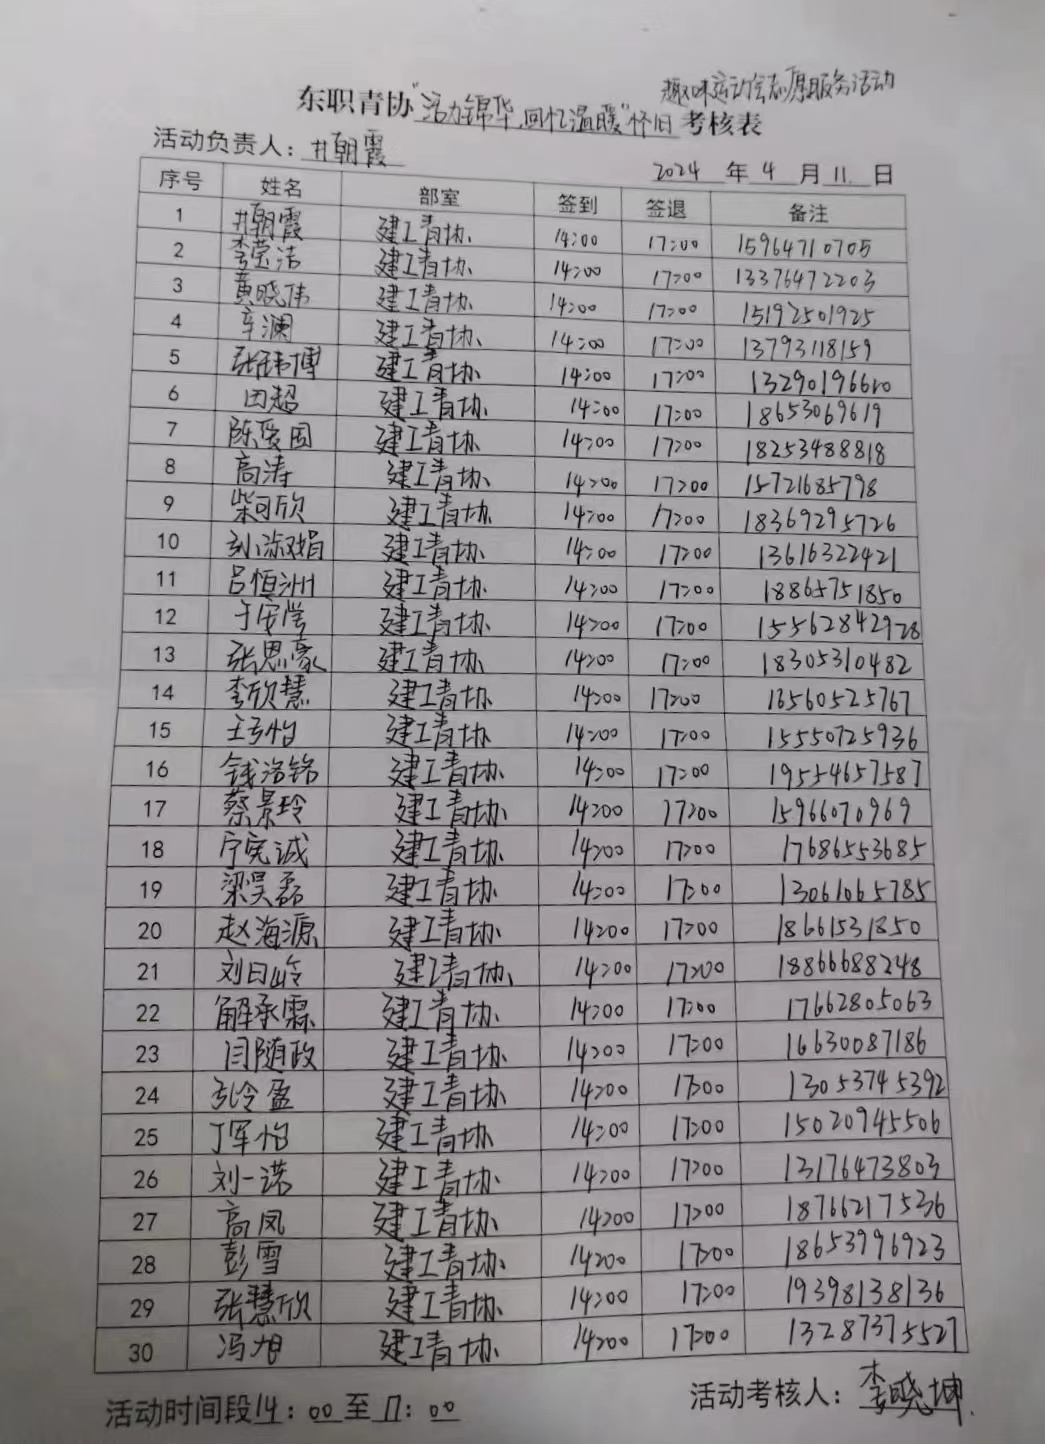 趣味运动会志愿服务活动
东职青协"活力锦华,回忆温暖"怀旧考核表
活动负责人：井朝霞
2024 年 4 月 11 日
序号 姓名 部室 签到 签退 备注
1 井朝霞 建工青协 14:00 17:00 15964710705
2 李莹洁 建工青协 14:00 17:00 13376472203
3 黄晓伟 建工青协 14:00 17:00 15192501925
4 辛澜 建工青协 14:00 17:00 13793118159
5 张玮博 建工青协 14:00 17:00 13290196610
6 田超 建工青协 14:00 17:00 18653069619
7 陈爱国 建工青协 14:00 17:00 18253488818
8 高涛 建工青协 14:00 17:00 15721685798
9 柴可欣 建工青协 14:00 17:00 18369295726
10 建工青协 14:00 17:00 13616322421
11 吕恒洲 建工青协 14:00 17:00 18865751850
12 建工青协 14:00 17:00 15562842928
13 张思豪 建工青协 14:00 17:00 18305310482
14 李欣慧 建工青协 14:00 17:00 16560525767
15 建工青协 14:00 17:00 15550725936
16 钱浩铭 建工青协 14:00 17:00 19554657587
17 蔡景玲 建工青协 14:00 17:00 15966070969
18 宁宪诚 建工青协 14:00 17:00 17686553685
19 梁昊磊 建工青协 14:00 17:00 13061065785
20 赵海源 建工青协 14:00 17:00 18661531850
21 刘日岭 建工青协 14:00 17:00 18866688248
22 解承霖 建工青协 14:00 17:00 17662805063
23 闫随政 建工青协 14:00 17:00 16630087186
24 建工青协 14:00 17:00 13053745392
25 丁军怡 建工青协 14:00 17:00 15020945506
26 刘一诺 建工青协 14:00 17:00 13176473803
27 高凤 建工青协 14:00 17:00 18766217536
28 彭雪 建工青协 14:00 17:00 18653996923
29 张慧欣 建工青协 14:00 17:00 19398138136
30 冯旭 建工青协 14:00 17:00 13287375527
活动时间段14：00至17：00
活动考核人：李晓坤